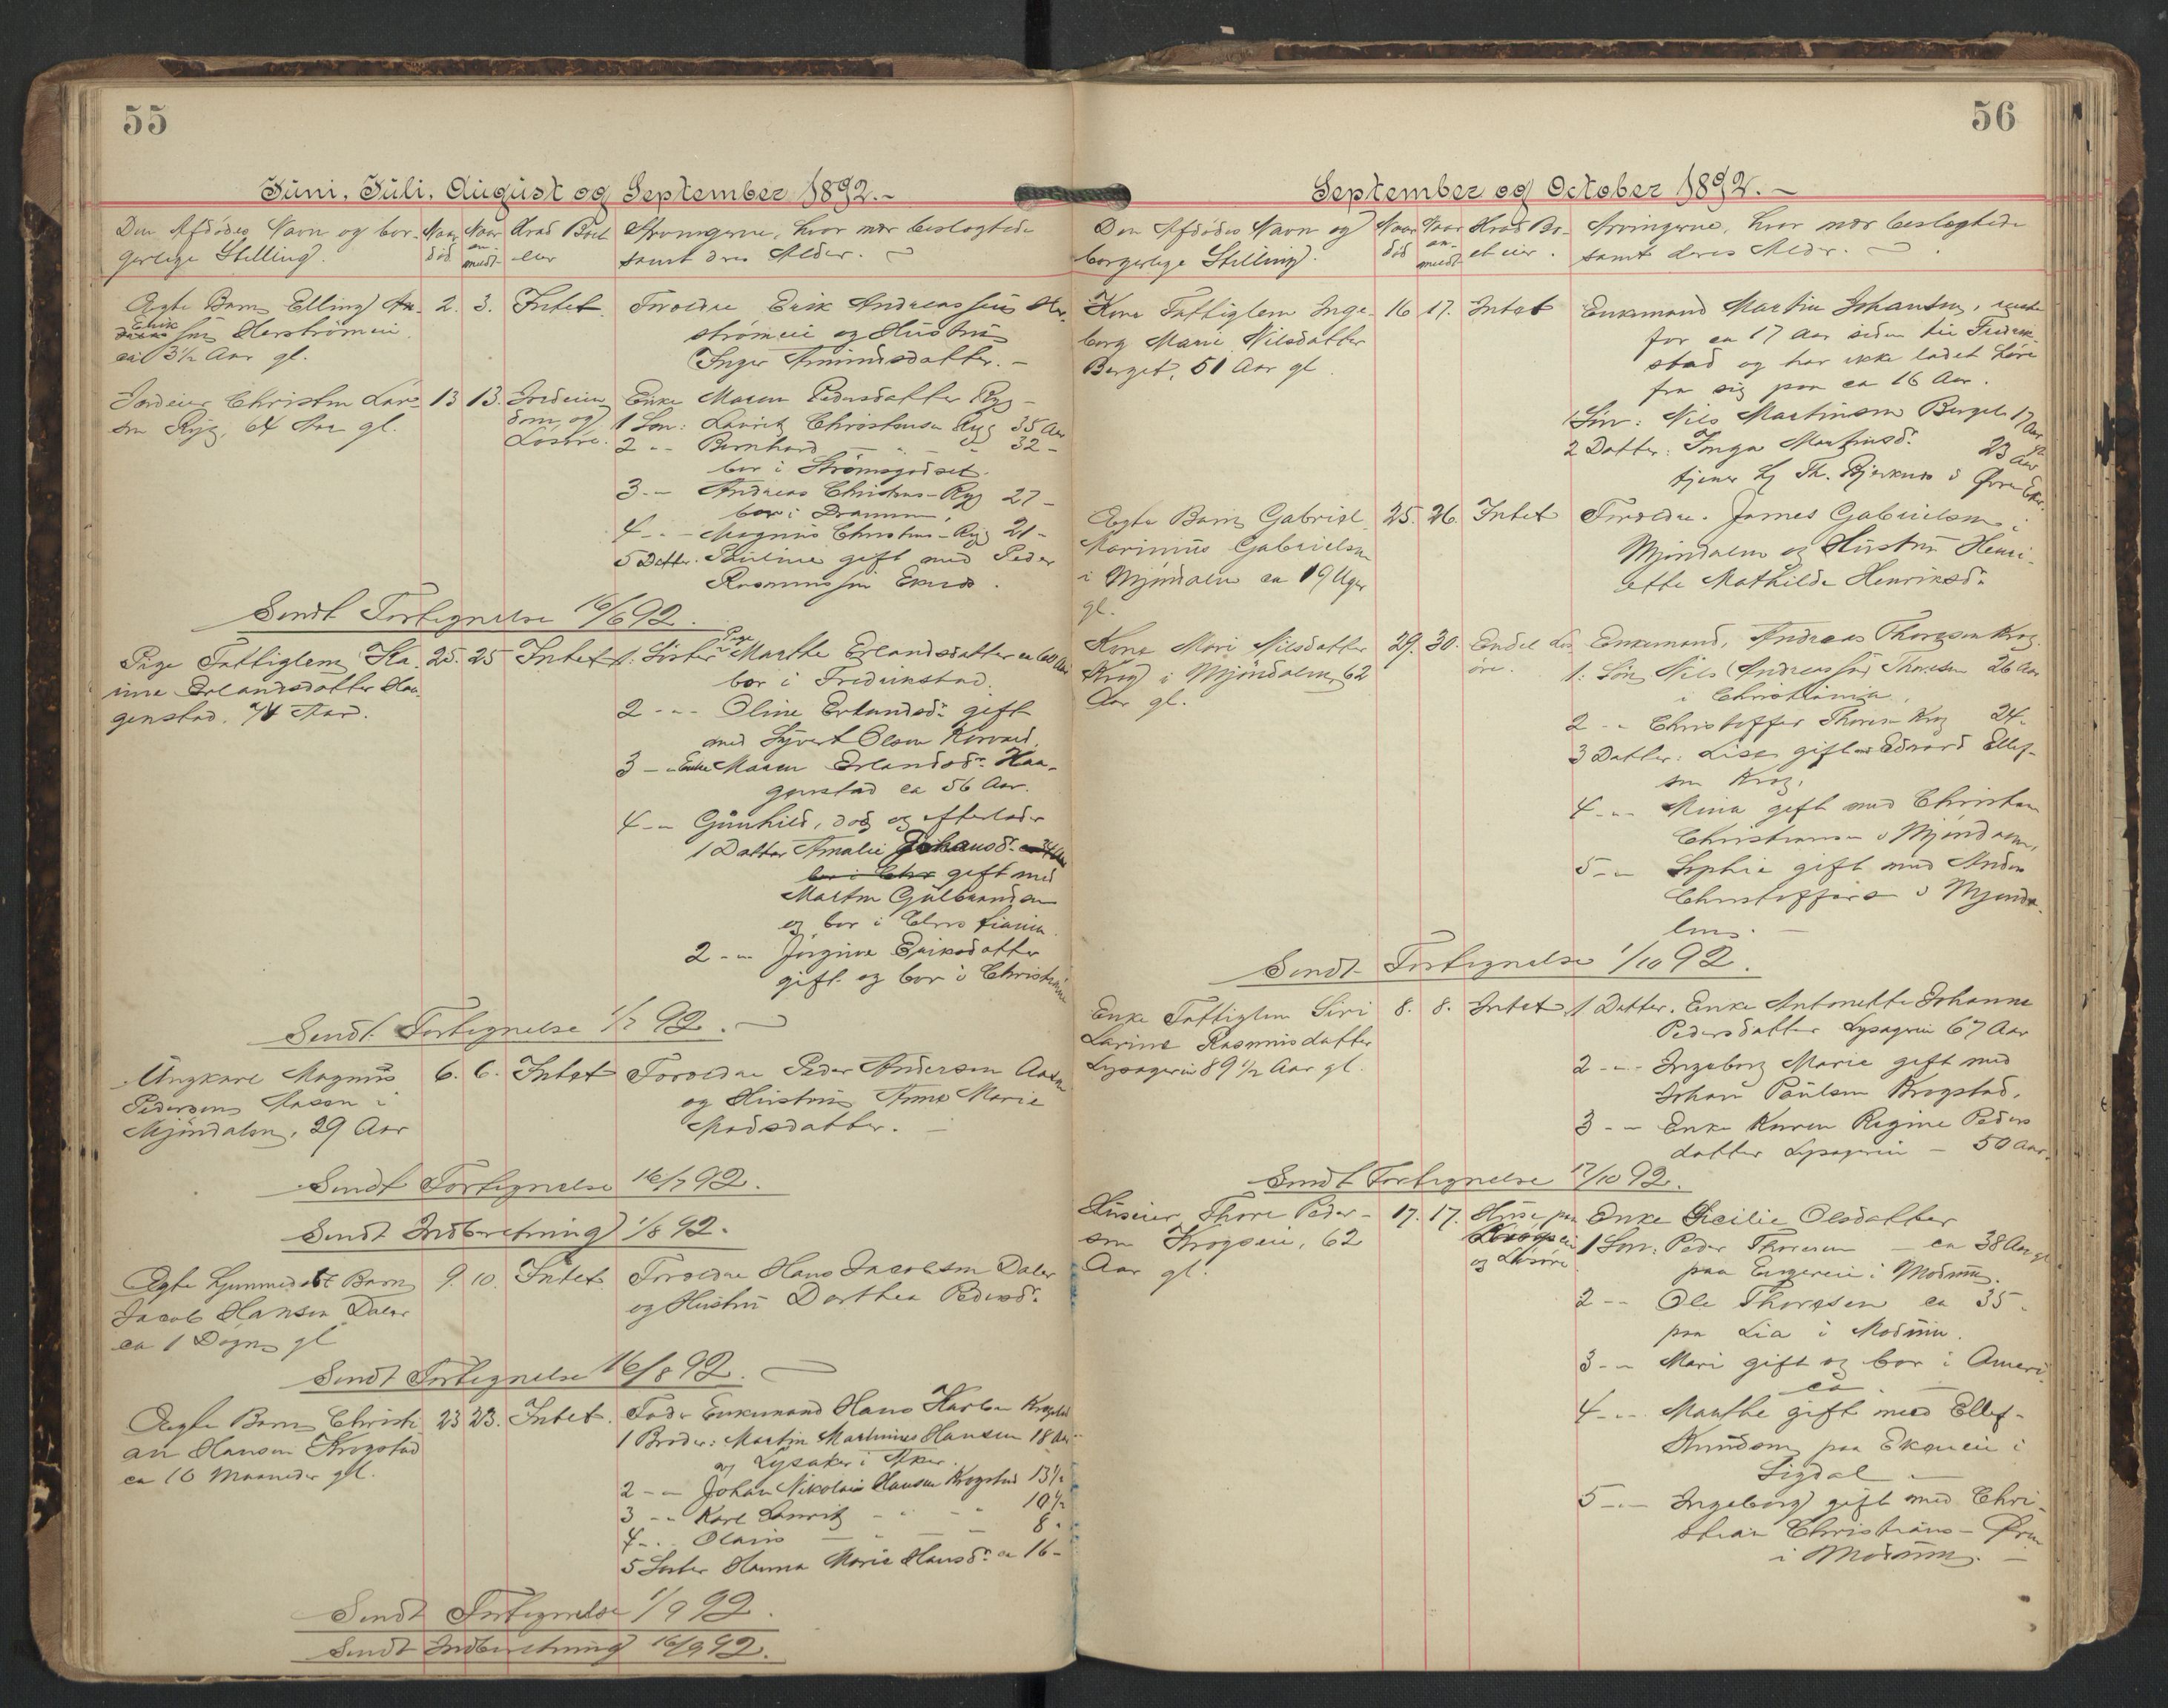 55
Juni, Juli, August og September 1892.-
Den Afdödes Navn og bor-
gerlige Stilling.
Naar död
Naar an-meldt
Hvad Boet eier
Arvingerne, hvor nær beslægtede
samt deres Alder.
Ægte Barn Elling
Erik sen Herströmeie
ca 3½ Aar gl.
2. 3. Intet
Foreldre Erik Andreassen Her-
strömeie og Hustru
Inger Amundsdatter.-
Jordeier Christen Lar-
sen Ryg, 64 Aar gl.
13 13. Jordeien-
dom og
Lösöre.
Enke Maren Pedersdatter Ryg-
1 Sön: Lauritz Christensen Ryg 35 Aar
2 - - Bernhard - - - 32 -
bor i Strömsgodset.
3. - Andreas Christens- Ryg 27 -
bor i Drammen,
4 - - Magnus Christens- Ryg 21 -
5 Datter. Pauline gift med Peder
Rasmussen
Sendt Fortegnelse 16/6 92.
Pige Fattiglem Ka-
rine Erlandsdatter Haa-
genstad, 74 Aar.
25. 25 Intet
1. Söster Pige Marthe Erlandsdatter ca 60 Aar
bor i Fredrikstad.
2 - - - Oline Erlandsd. gift
med Syvert Olsen
3 - - Enke Maren Erlandsd. Haa-
genstad ca 56 Aar.
4 - - Gunhild, död og efterlader
1 Datter Amalie Johansd.
bor i Chra gift med
Martin Gulbrandsen
og bor i Christiania.
2 - - Jörgine Eriksdatter
gift og bor i Christiania
Sendt Fortegnelse 1/7 92.
Ungkarl Magnus
Pedersen Aasen i
Mjöndalen, 29 Aar
6. 6. Intet
Foreldre Peder Andersen Aasen
og Hustru Anne Marie
Madsdatter. -
Sendt Fortegnelse 16/7 92.
Sendt Indberetning 1/8 92.
Ægte hjemmedöbt Barn
Jacob Hansen Daler
ca 1 Dögn gl
9. 10. Intet
Foreldre Hans Jacobsen Daler
og Hustru Dorthea Pedersd.
Sendt Fortegnelse 16/8 92.
Ægte Barn Christi-
an Hansen Krogstad
ca 10 Maaneder gl.
23 23. Intet.
Fader Enkemand Hans Karlsen Krogstad
1 Broder: Martin Martinius Hansen 18 Aar
og Lysaker i Aker.
2 - - Johan Nikolais Hansen Krogstad 13½
3 - - Karl Lauritz - - - 10½
4 - - Olaus - - - 8 -
5 Söster Hanna Marie Hansd. ca 16 -
Sendt Fortegnelse 1/9 92.
Sendt Indberetning 16/9 92.
56
September og October 1892.-
Den Afdödes Navn og
borgerlige Stilling.
Naar död
Naar an-meldt
Hvad Bo-et eier.
Arvingerne, hvor nær beslægtede
samt deres Alder.
Kone Fattiglem Inge-
borg Marie Nilsdatter
Berget, 51 Aar gl.
16 17. Intet
Enkemand Martin Johansen, reiste
for ca 17 Aar siden til Fredrik-
stad og har ikke ladet höre
fra sig paa ca 16 Aar.
1 Sön: Nils Martinsen Berget 17 Aar
2 Datter: Inga Martinsd. 23 Aar gl
tjener hj Th. Bjerknes i Övre Eker.
Ægte Barn Gabriel
Marinius Gabrielsen
i Mjöndalen ca 19 Uger
gl.
25. 26. Intet
Foreldre. James Gabrielsen i
Mjöndalen og Hustru Henri-
ette Mathilde Henriksd.
Kone Mari Nilsdatter
Krog i Mjöndalen, 62
Aar gl.
29. 30. Endel Lös-
öre.
Enkemand, Andreas Thoresen Krog.
1. Sön Nils Andreassen Thoresen 26 Aar
i Christiania.
2 - - Christoffer Thoresen Krog 24 -
3 Datter: Lise gift med Edvard Ellef-
sen Krog.
4 - - Mina gift med Christian
Christiansen i Mjöndalen,
5 - - Sophie gift med Anders
Christoffers i Mjönda-
len. -
Sendt Fortegnelse 1/10 92.
Enke Fattiglem Siri
Larine Rasmusdatter
Lysageren 89½ Aar gl.
8. 8. Intet
1 Datter. Enke Antonette Johanne
Pedersdatter Lysageren 67 Aar
2 - - - Ingeborg Marie gift med
Johan Paulsen Krogstad.
3 - - Enke Karen Regine Peders
datter Lysageren - 50 Aar.
Sendt Fortegnelse 17/10 92.
Huseier Thore Peder-
sen Krogseie, 62
Aar gl.
17. 17. Huse paa
Krogseie
og Lösöre
Enke Cicilie Olsdatter
1 Sön: Peder Thoresen - ca 38 Aar gl
paa Engereie i Modum.
2 - - Ole Thoresen ca 35 -
paa Lia i Modum.
3 - - Mari gift og bor i Ameri-
ca. -
4 - - Marthe gift med Ellef
Knudsen paa Ekereie i
Sigdal -
5 - - - Ingeborg gift med Chri-
stian Christians-
i Modum. -